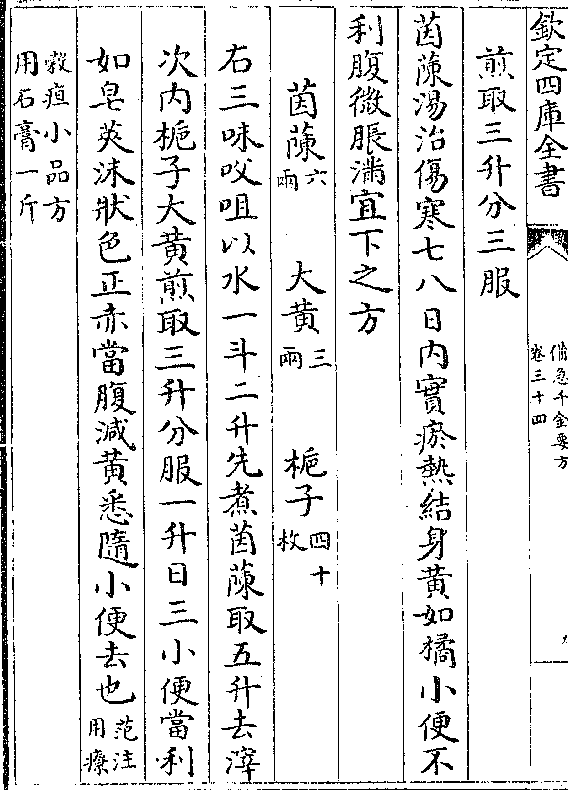 欽定四庫全書
備急千金要方
卷三十四
煎取三升分三服
茵蔯湯治傷寒七八日内實瘀熱結身黄如橘小便不
利腹微脹滿宜下之方
茵蔯六兩 大黄三兩 梔子四十枚
右三味㕮咀以水一斗二升先煮茵蔯取五升去滓
次内梔子大黄煎取三升分服一升日三小便當利
如皂莢沫狀色正赤當腹減黄悉隨小便去也范注用療
穀疸小品方用石膏一斤